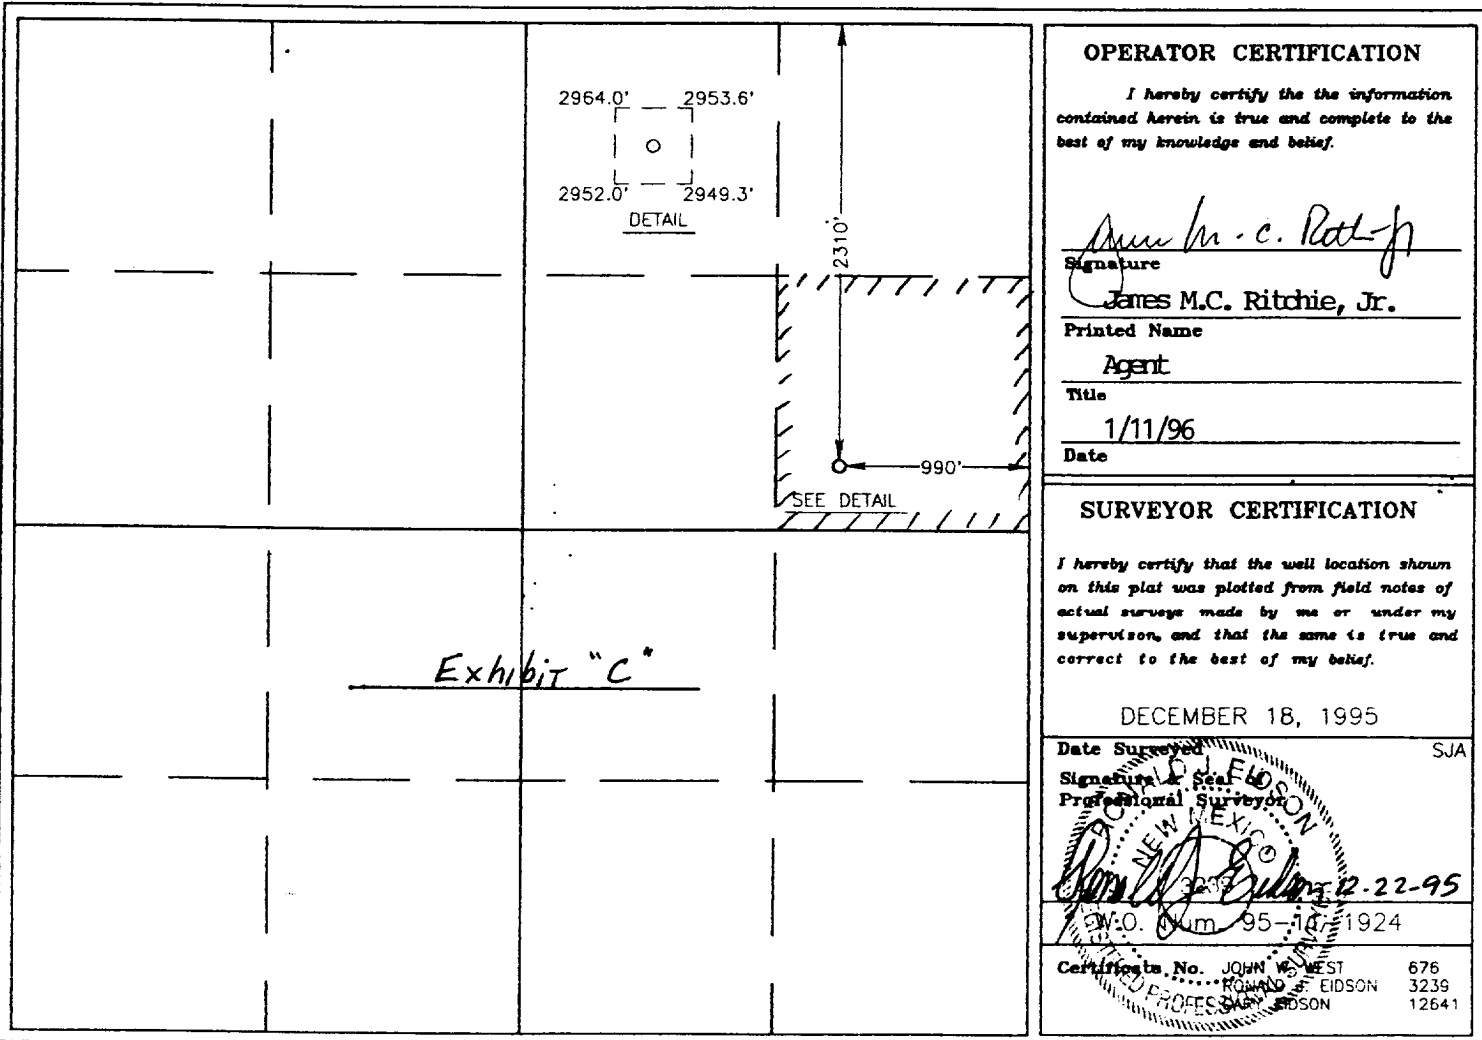 2964.0' 2953.6'
2952.0' 2949.3'
DETAIL
2310'
990'
SEE DETAIL
Exhibit "C"
OPERATOR CERTIFICATION
I hereby certify the the information
contained herein is true and complete to the
best of my knowledge and belief.
Signature
James M.C. Ritchie, Jr.
Printed Name
Agent
Title
1/11/96
Date
SURVEYOR CERTIFICATION
I hereby certify that the well location shown
on this plat was plotted from field notes of
actual surveys made by me or under my
supervison, and that the same is true and
correct to the best of my belief.
DECEMBER 18, 1995
Date Surveyed SJA
Signature & Seal of
Professional Surveyor
RONALD J. EIDSON
NEW MEXICO
3239
REGISTERED PROFESSIONAL SURVEYOR
12-22-95
W.O. Num. 95-11-1924
Certificate No. JOHN W. WEST 676
RONALD J. EIDSON 3239
GARY EIDSON 12641